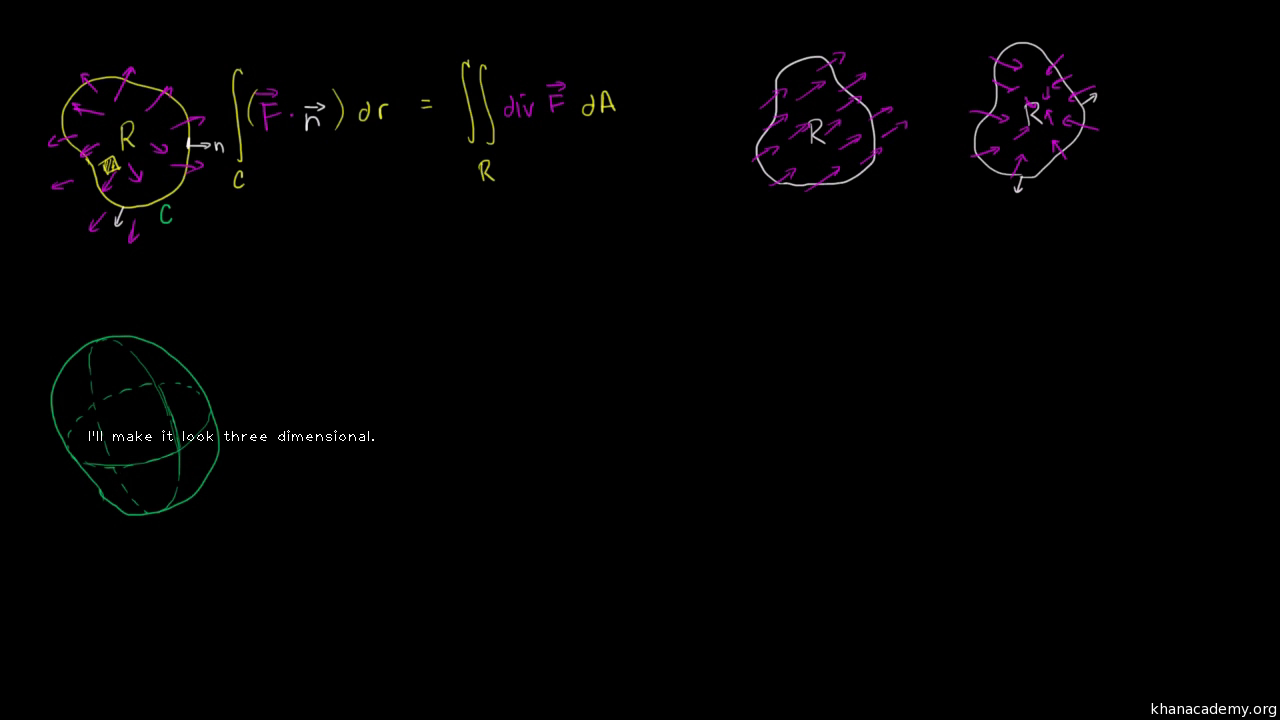 R
n
C
∫_C (F⃗ · n⃗) dr = ∬_R div F⃗ dA
R
R
I'll make it look three dimensional.
khanacademy.org